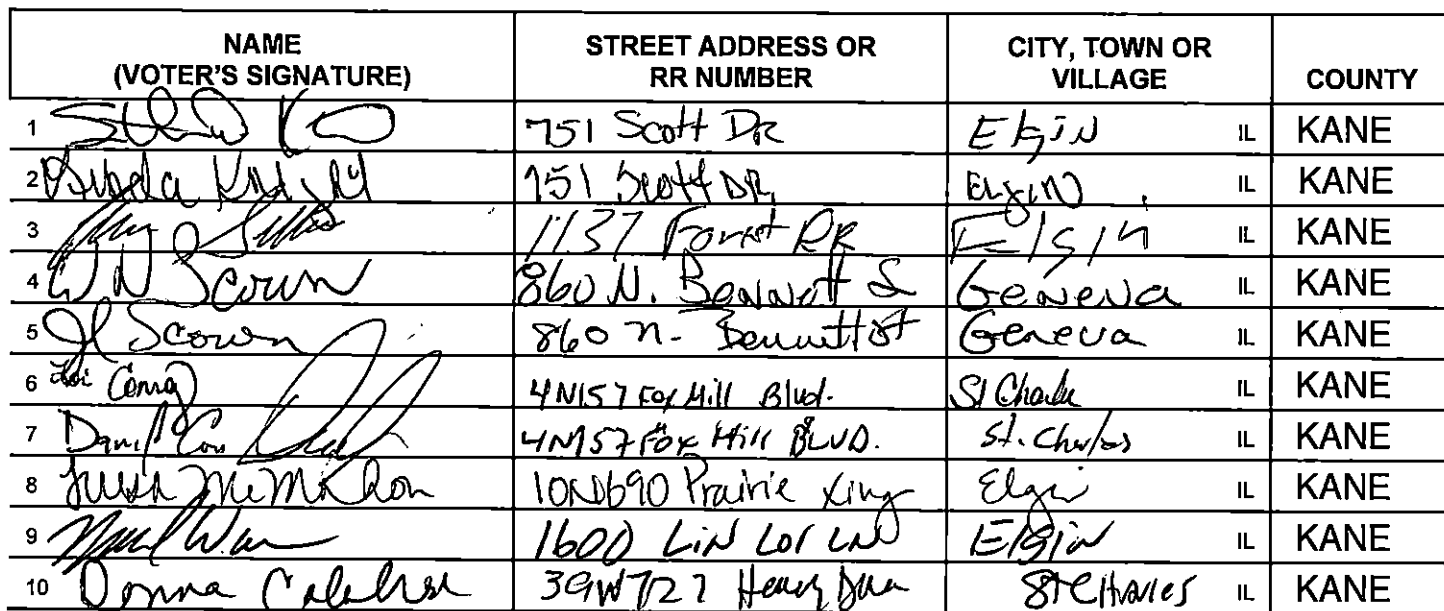 NAME (VOTER'S SIGNATURE) STREET ADDRESS OR RR NUMBER CITY, TOWN OR VILLAGE COUNTY
1 751 Scott DR Elgin IL KANE
2 751 Scott DR Elgin IL KANE
3 1137 Forest DR Elgin IL KANE
4 W N Scown 860 N. Bennett Geneva IL KANE
5 Scown 860 n. Bennett st Geneva IL KANE
6 4N157 Fox Mill Blvd. St Charles IL KANE
7 4N157 Fox Mill BLVD. St. Charles IL KANE
8 McMahon 10N690 Prairie Xing Elgin IL KANE
9 1600 LiN Lor LN Elgin IL KANE
10 Donna 39W727 St Charles IL KANE